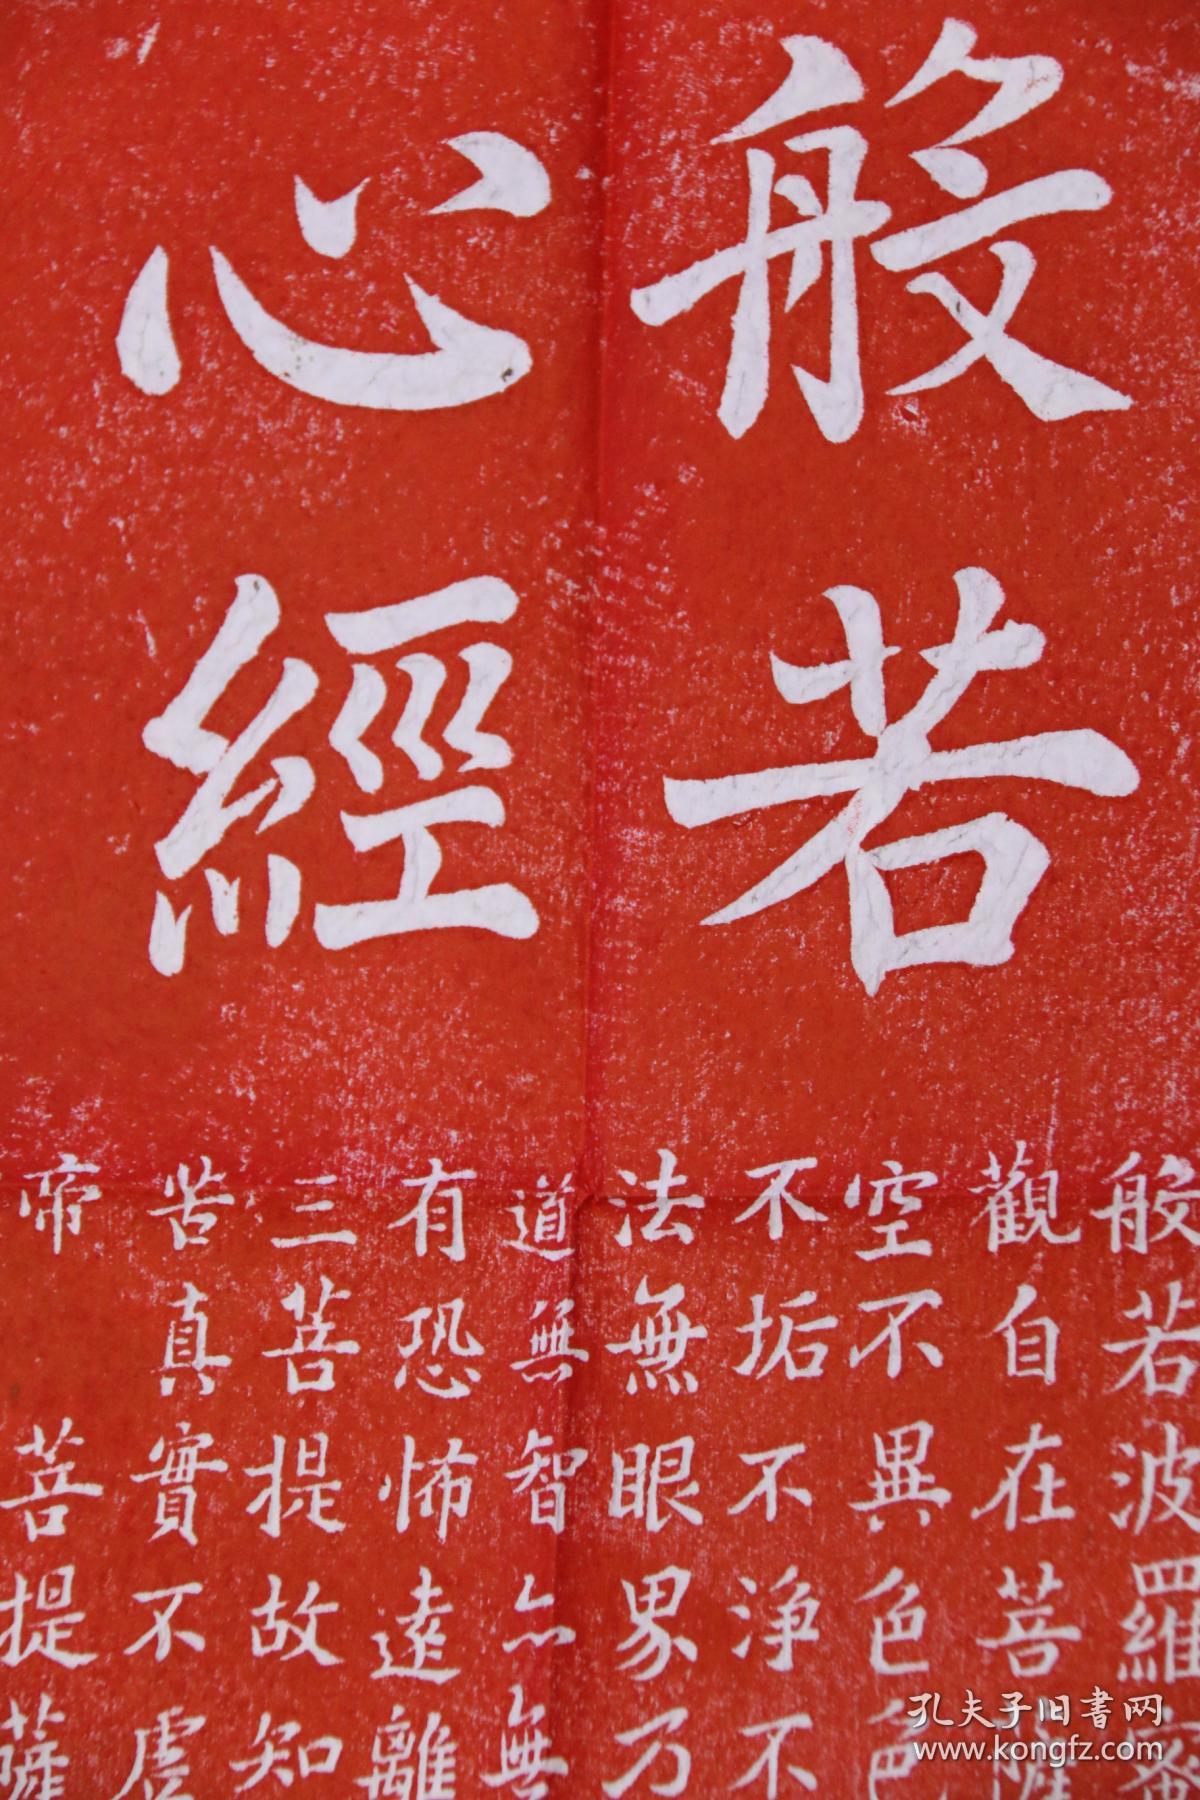 般若
心經
般若波羅蜜
觀自在菩薩
空不異色色
不垢不淨不
法無眼界乃
道無智亦無
有恐怖遠離
三菩提故知
苦真實不虛
帝菩提薩
孔夫子旧书网
www.kongfz.com